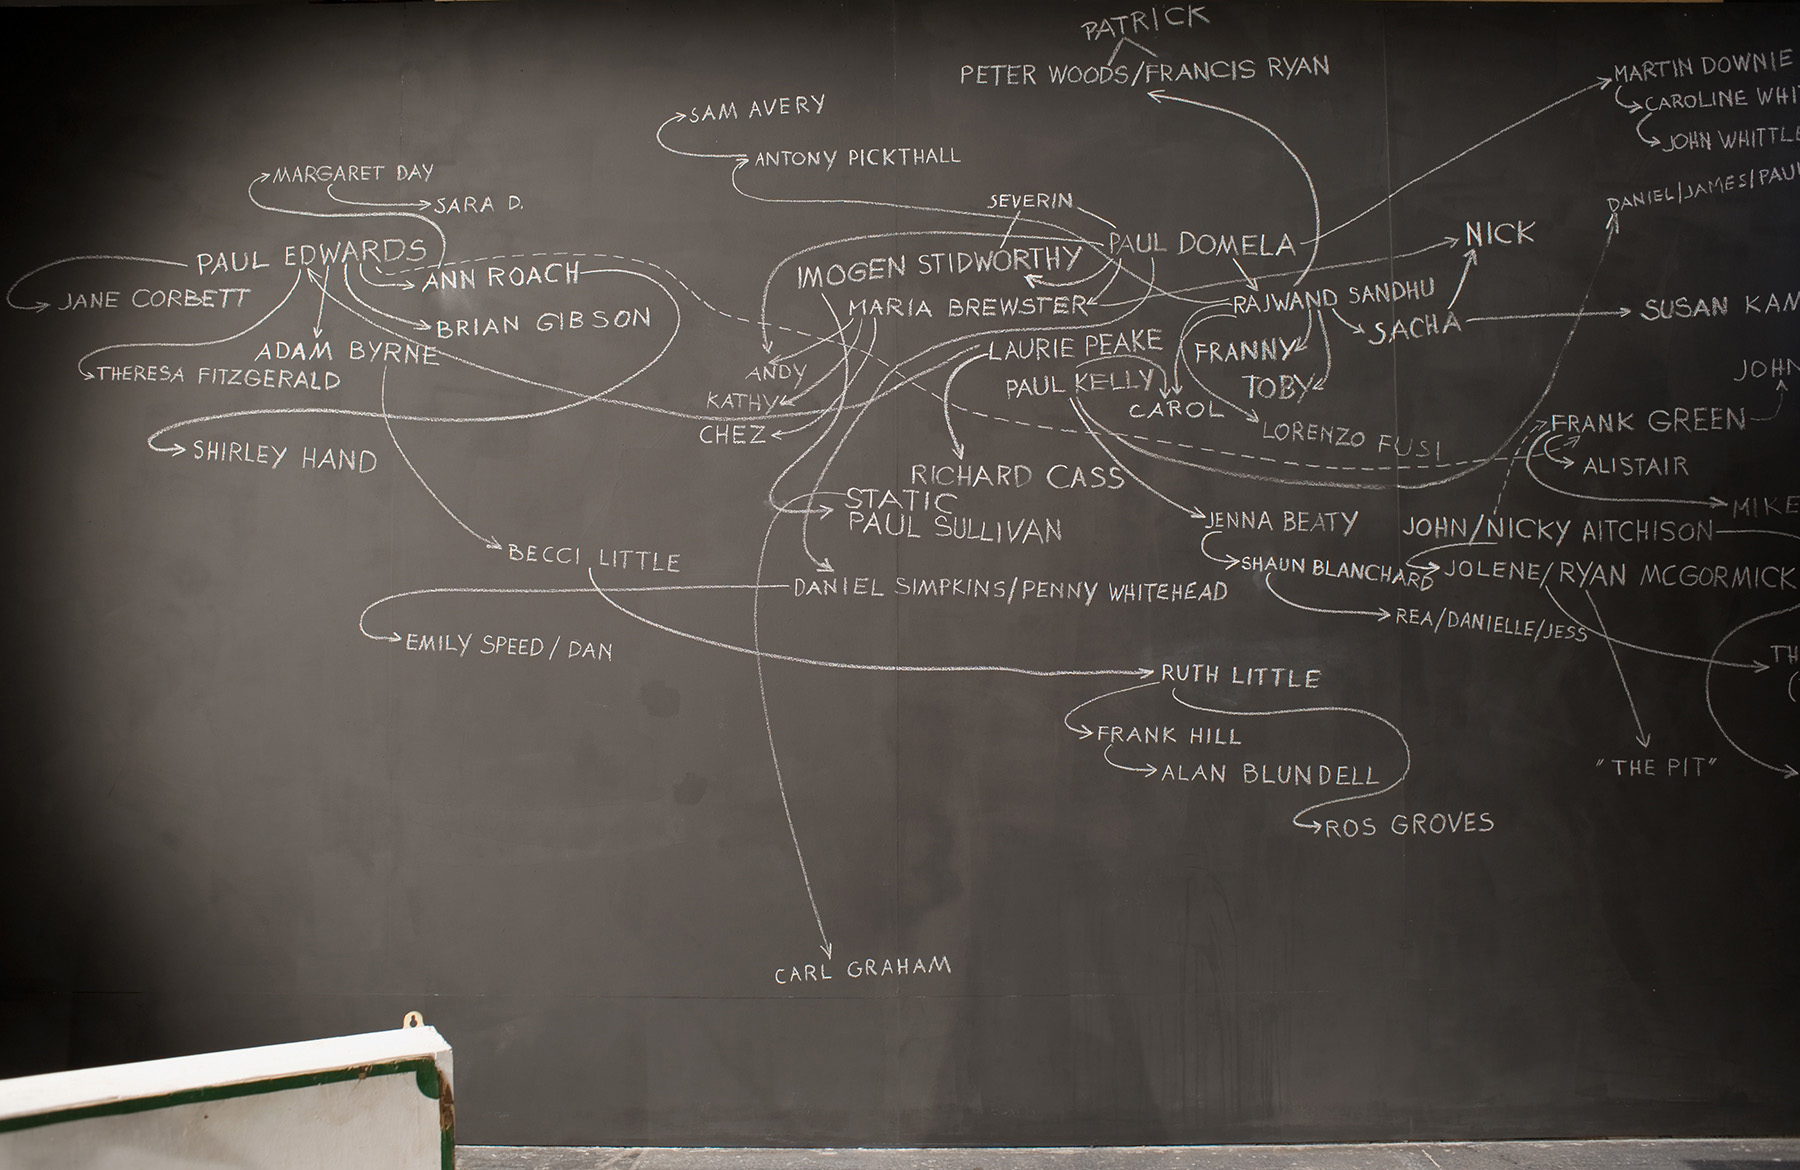 PATRICK
PETER WOODS/FRANCIS RYAN
MARTIN DOWNIE
CAROLINE
JOHN
SAM AVERY
ANTONY PICKTHALL
MARGARET DAY
SARA D.
SEVERIN
DANIEL/JAMES/PAUL
PAUL EDWARDS
PAUL DOMELA
NICK
IMOGEN STIDWORTHY
ANN ROACH
JANE CORBETT
MARIA BREWSTER
RAJWAND SANDHU
SUSAN
BRIAN GIBSON
SACHA
ADAM BYRNE
LAURIE PEAKE
FRANNY
THERESA FITZGERALD
ANDY
PAUL KELLY
TOBY
JOHN
KATHY
CAROL
CHEZ
LORENZO FUSI
FRANK GREEN
SHIRLEY HAND
RICHARD CASS
ALISTAIR
STATIC
PAUL SULLIVAN
MIKE
JENNA BEATY
JOHN/NICKY AITCHISON
BECCI LITTLE
SHAUN BLANCHARD
JOLENE/RYAN MCGORMICK
DANIEL SIMPKINS/PENNY WHITEHEAD
REA/DANIELLE/JESS
EMILY SPEED/DAN
RUTH LITTLE
FRANK HILL
"THE PIT"
ALAN BLUNDELL
ROS GROVES
CARL GRAHAM